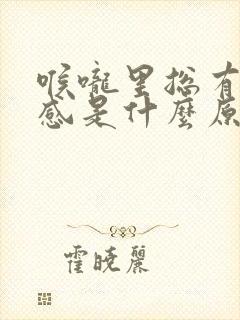 喉嚨里總有
感是什麼原
霍曉麗